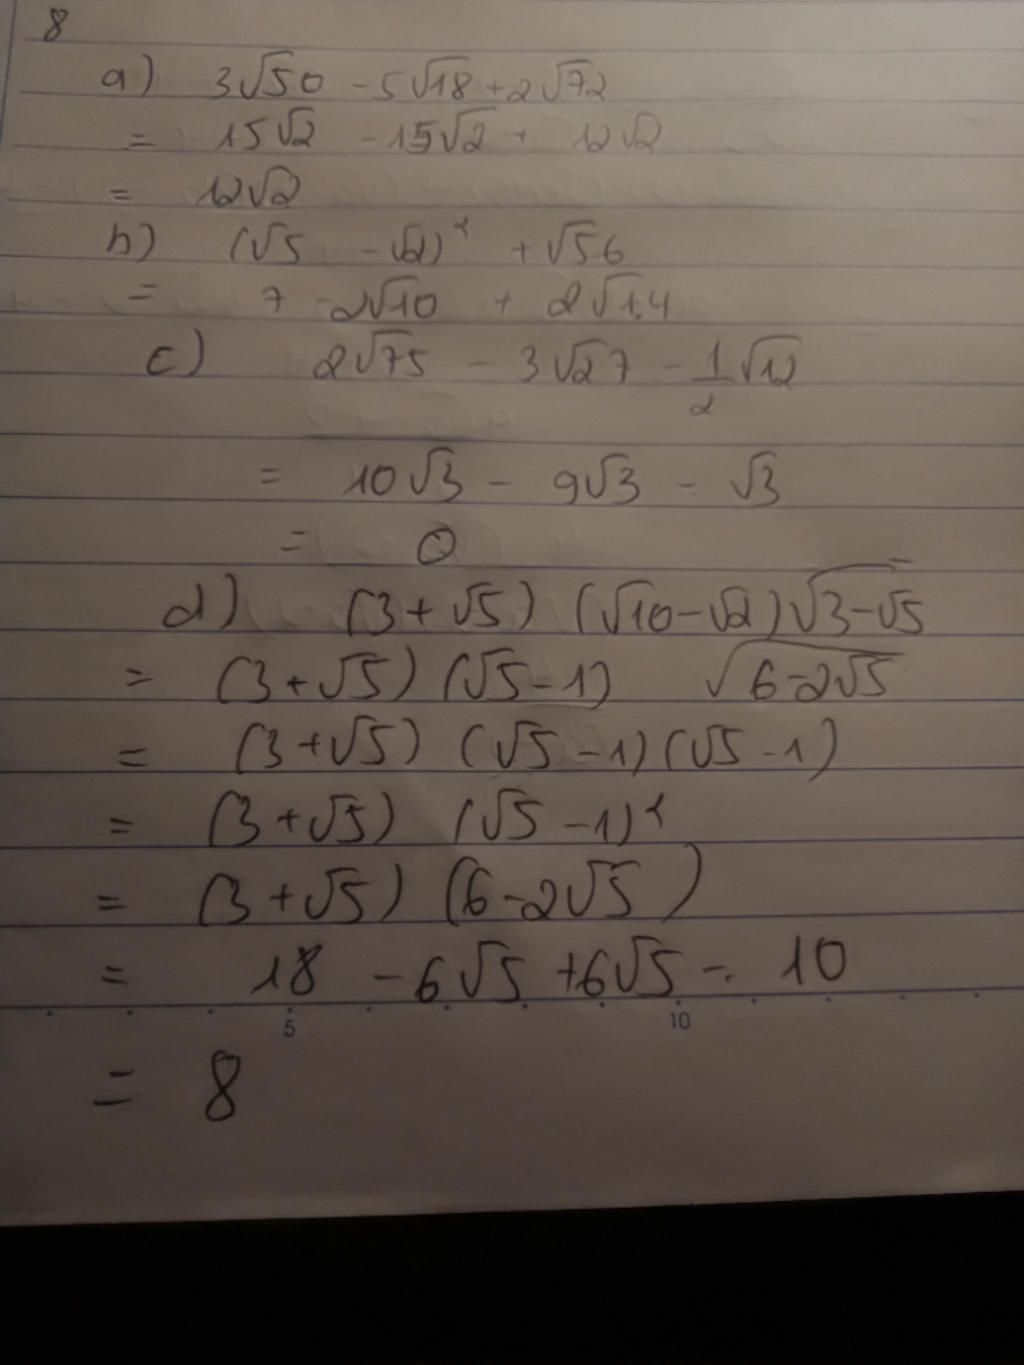 8
a) 3√50 - 5√18 + 2√72
= 15√2 - 15√2 + 12√2
= 12√2
b) (√5 - √2)² + √56
= 7 - 2√10 + 2√14
c) 2√75 - 3√27 - 1/2 √12
= 10√3 - 9√3 - √3
= 0
d) (3 + √5) (√10 - √2) √(3 - √5)
= (3 + √5) (√5 - 1) √(6 - 2√5)
= (3 + √5) (√5 - 1) (√5 - 1)
= (3 + √5) (√5 - 1)²
= (3 + √5) (6 - 2√5)
= 18 - 6√5 + 6√5 - 10
5 10
= 8